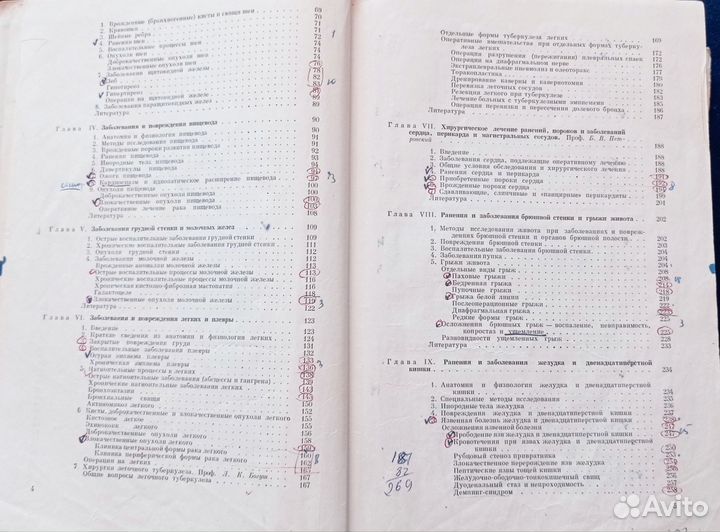 1. Врожденные (бранхиогенные) кисты и свищи шеи 69
2. Кривошея 70
3. Шейные ребра 71
4. Ранения шеи 72
5. Воспалительные процессы шеи 74
6. Опухоли шеи 74
Доброкачественные опухоли шеи
Злокачественные опухоли шеи 76
7. Заболевания щитовидной железы 78
Зоб 82
Гипотиреоз 83
Гипертиреоз
Операции на щитовидной железе 89
8. Заболевания паращитовидных желез 89
Литература
Глава IV. Заболевания и повреждения пищевода 90
1. Анатомия и физиология пищевода 90
2. Методы исследования пищевода 91
3. Врожденные пороки развития пищевода 91
4. Ранения пищевода 94
5. Инородные тела пищевода 91
6. Дивертикулы пищевода
7. Ожоги пищевода
8. Кардиоспазм и идиопатическое расширение пищевода
9. Опухоли пищевода 100
Доброкачественные опухоли пищевода 100
Злокачественные опухоли пищевода
Оперативное лечение рака пищевода
Литература 108
Глава V. Заболевания грудной стенки и молочных желез 109
1. Острые воспалительные заболевания грудной стенки 109
2. Хронические воспалительные заболевания грудной стенки 111
3. Опухоли грудной стенки 112
4. Заболевания молочной железы 112
Врожденные аномалии молочной железы
Острые воспалительные процессы молочной железы 113
Хронические воспалительные процессы молочной железы 116
Хроническая кистозно-фиброзная мастопатия 116
Галактоцеле 118
Злокачественные опухоли молочной железы 119
Литература 122
Глава VI. Заболевания и повреждения легких и плевры 123
1. Введение 123
2. Краткие сведения из анатомии и физиологии легких 123
3. Закрытые повреждения груди
4. Воспалительные заболевания плевры 131
Острая эмпиема плевры 132
Хроническая эмпиема плевры 133
5. Нагноительные процессы в легких
Острые нагноительные заболевания (абсцессы и гангрена)
Хронические нагноительные заболевания легких
Бронхоэктазии 142
Бронхиальные свищи 145
Актиномикоз легкого 150
6. Кисты, доброкачественные и злокачественные опухоли легкого 152
Кистозное легкое 155
Эхинококк легкого 156
Доброкачественные опухоли легкого
Злокачественные опухоли легкого 158
Клиника центральной формы рака легкого
Клиника периферической формы рака легкого 160
Операции на легких 162
7. Хирургия легочного туберкулеза. Проф. Л. К. Богуш 167
Общие вопросы легочного туберкулеза 167
4
Отдельные формы туберкулеза легких 169
Оперативные вмешательства при отдельных формах туберкулеза легких 172
Операция разрушения (пережигания) плевральных спаек 176
Операции на диафрагмальном нерве 177
Экстраплевральные пневмолиз и олеоторакс 178
Торакопластика 178
Дренирование каверны и кавернотомия 180
Перевязка легочных сосудов 181
Резекция легкого при туберкулезе 182
Лечение больных с туберкулезными эмпиемами 185
Операция перевязки и пересечения долевого бронха 186
Литература 187
Глава VII. Хирургическое лечение ранений, пороков и заболеваний
сердца, перикарда и магистральных сосудов. Проф. Б. В. Пет-
ровский 188
1. Введение 188
2. Заболевания сердца, подлежащие оперативному лечению 188
3. Общие условия обезболивания и хирургического лечения
4. Ранения сердца и перикарда 191
5. Приобретенные пороки сердца
6. Врожденные пороки сердца 195
7. Сдавливающие, слипчивые и «панцирные» перикардиты
Литература 201
Глава VIII. Ранения и заболевания брюшной стенки и грыжи живота 202
1. Методы исследования живота при заболеваниях и повреж-
дениях брюшной стенки и органов брюшной полости 202
2. Повреждения брюшной стенки
3. Воспалительные заболевания брюшной стенки
4. Заболевания пупка
5. Грыжи живота 208
Отдельные виды грыж
Паховые грыжи
Бедренная грыжа 214
Пупочные грыжи 218
Грыжа белой линии
Послеоперационные грыжи 222
Диафрагмальная грыжа 223
Редкие формы грыж 225
Осложнения брюшных грыж — воспаление, невправимость,
копростаз и ущемление 225
Разновидности ущемленных грыж 228
Литература 233
Глава IX. Ранения и заболевания желудка и двенадцатиперстной
кишки 234
1. Анатомия и физиология желудка и двенадцатиперстной
кишки 234
2. Специальные методы исследования
3. Инородные тела желудка
4. Повреждения желудка и двенадцатиперстной кишки
5. Язвенная болезнь желудка и двенадцатиперстной кишки
Осложнения язвенной болезни
Прободение язв желудка и двенадцатиперстной кишки
Кровотечения при язвах желудка и двенадцатиперстной
кишки
Рубцовый стеноз привратника
Злокачественное перерождение язв желудка
Пептические язвы тощей кишки
Желудочно-ободочно-тонкокишечный свищ
Дуоденальный стаз и непроходимость
Демпинг-синдром 258
187
32
269